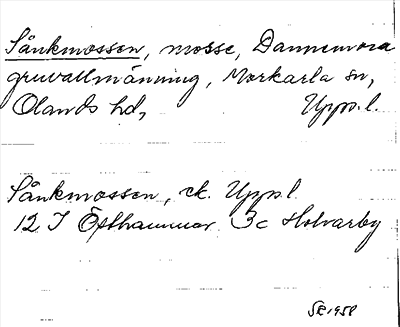 Sånkmossen, mosse, Dannemora
gruvallmänning, Morkarla sn,
Olands hd, Upps. l.
Sånkmossen, ek. Upps l.
12 I Östhammar 3c Holvarby
SE 1958